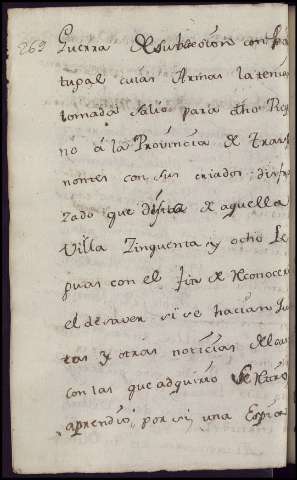 269
Guerra de subcesion con Por
tugal cuias Armas la tenia
tomada salio para dho Rey
no á la Provincia de tras
montes con sus criados, disfra
zado que dista de aquella
Villa Zinquenta y ocho Le
guas con el fin de Reconocer
el de saver si se hacian Ju
tas y otras noticias
con las que adquirio se Retiro
aprendio, por si, una Espia